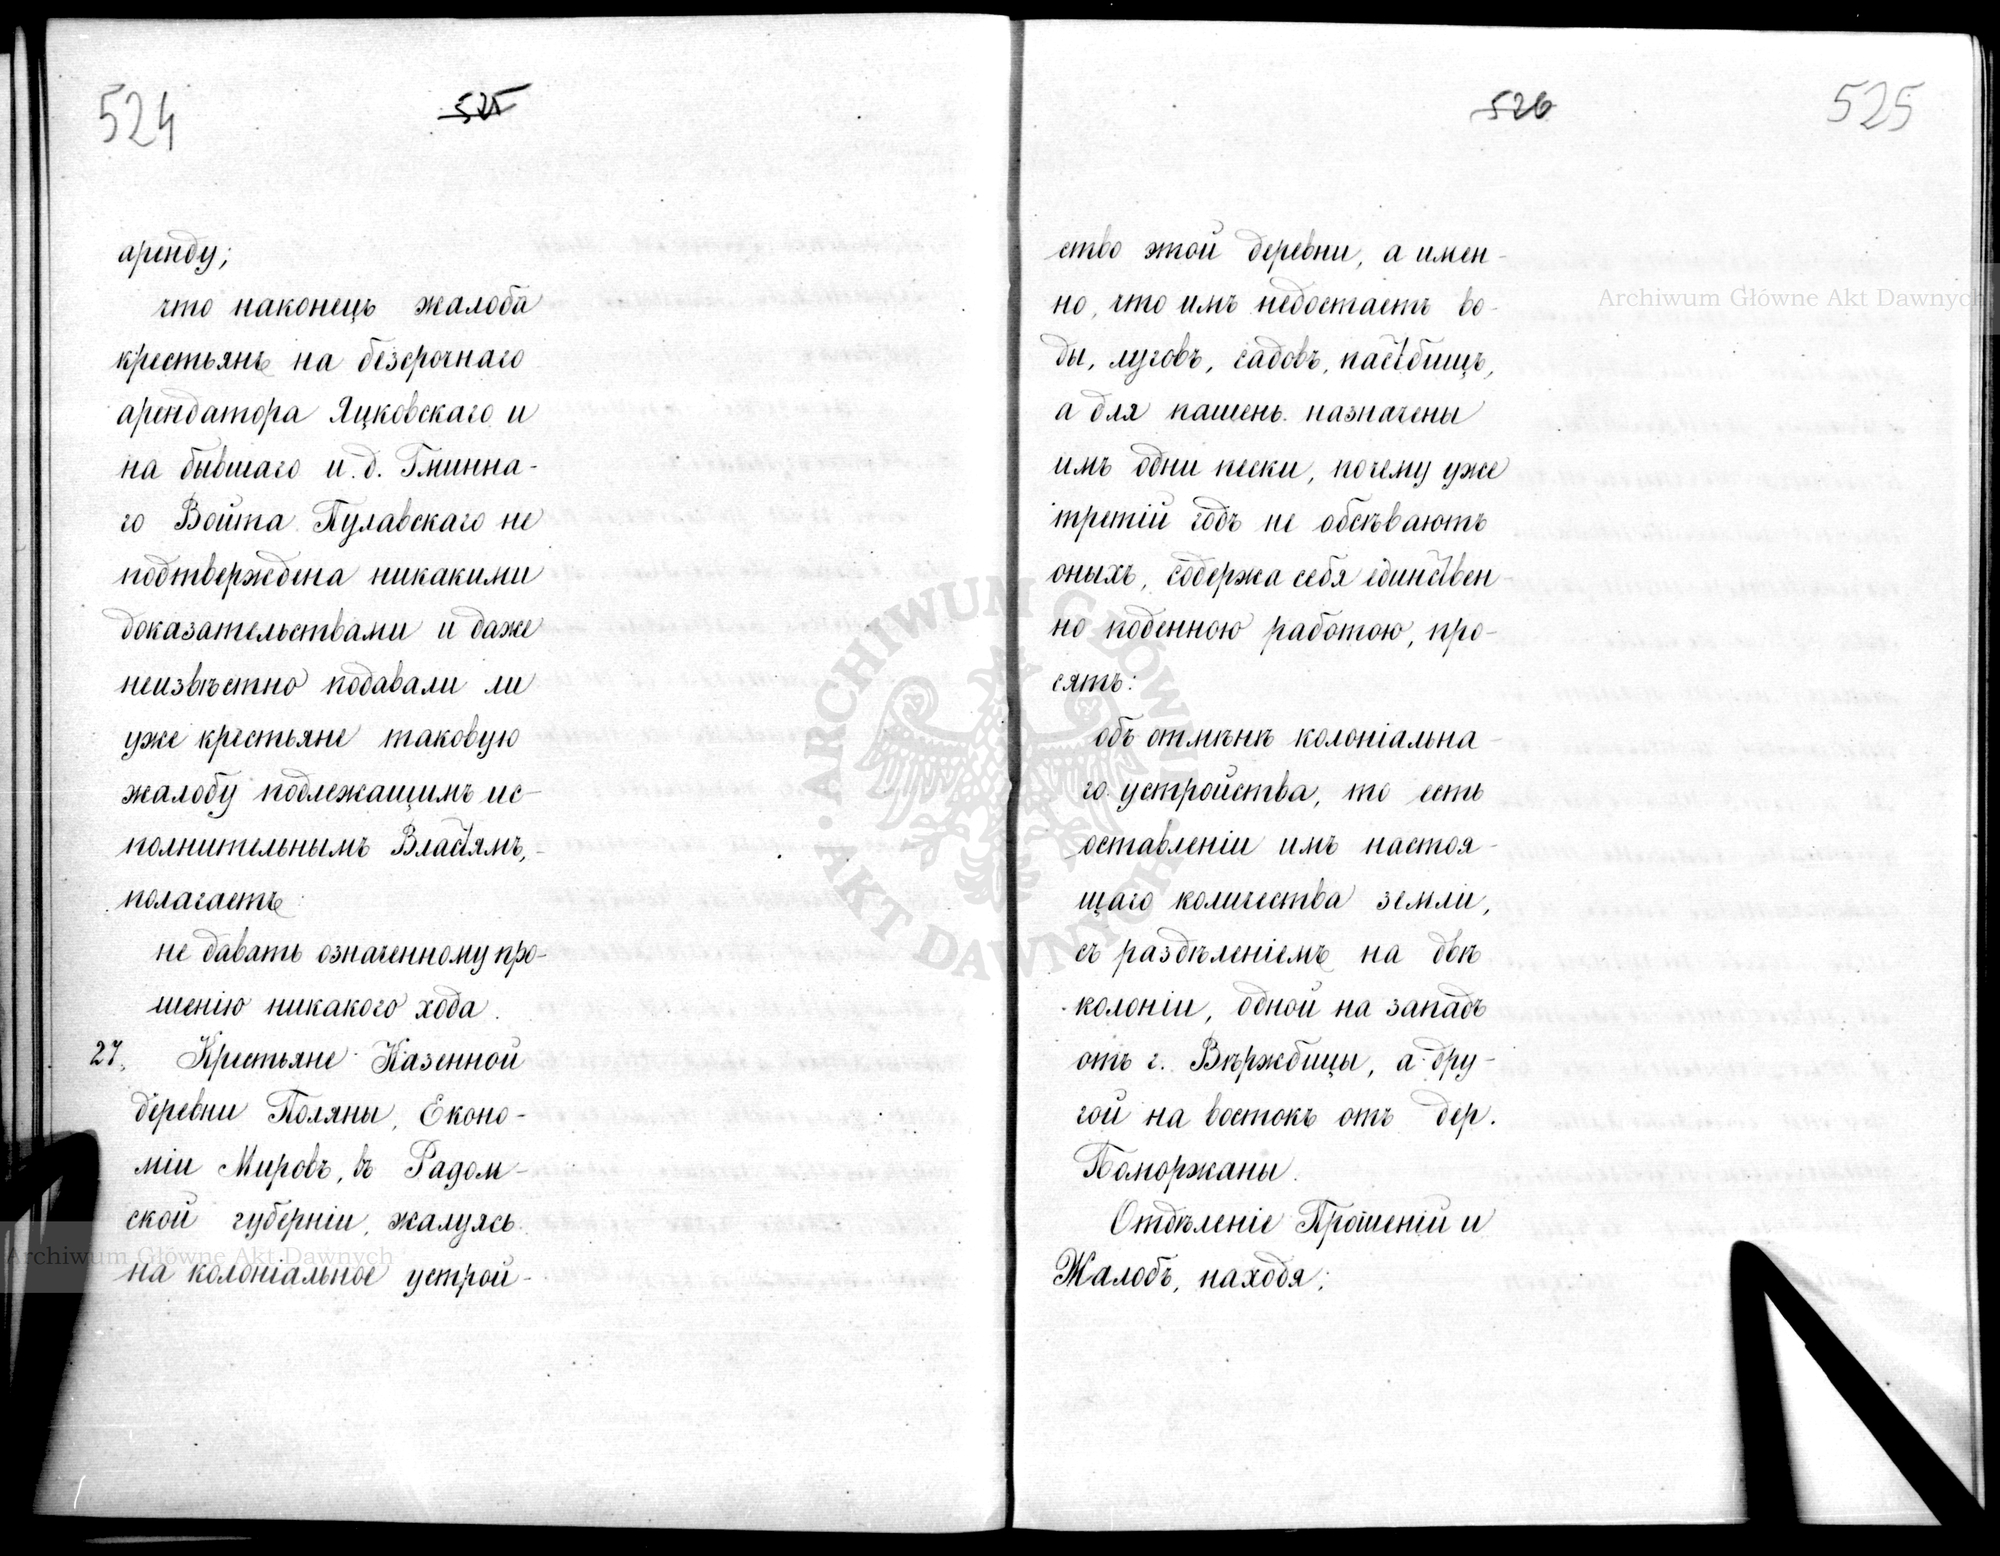 524
525
аренду;
что наконецъ жалоба
крестьянъ на безсрочнаго
арендатора Яцковскаго и
на бывшаго и. д. Гминна-
го Войта Пулавскаго не
подтверждена никакими
доказательствами и даже
неизвѣстно подавали ли
уже крестьяне таковую
жалобу подлежащимъ ис-
полнительнымъ Властямъ,
полагаетъ
не давать означенному про-
шенію никакого хода.
27. Крестьяне Казенной
деревни Поляны, Еконо-
міи Мировъ, въ Радом-
ской губерніи, жалуясь
на колоніальное устрой-
526
525
ство этой деревни, а имен-
но, что имъ недостаетъ во-
ды, луговъ, садовъ, пастбищъ,
а для пашень назначены
имъ одни пески, почему уже
третій годъ не обсѣваютъ
оныхъ, содержа себя единствен-
но поденною работою, про-
сятъ:
объ отмѣнѣ колоніальна-
го устройства, то есть
оставленіи имъ настоя-
щаго количества земли,
съ раздѣленіемъ на двѣ
колоніи, одной на западъ
отъ г. Вѣржбицы, а дру-
гой на востокъ отъ дер.
Поморжаны.
Отдѣленіе Прошеній и
Жалобъ, находя;
Archiwum Główne Akt Dawnych
Archiwum Główne Akt Dawnych
ARCHIWUM GŁÓWNE AKT DAWNYCH